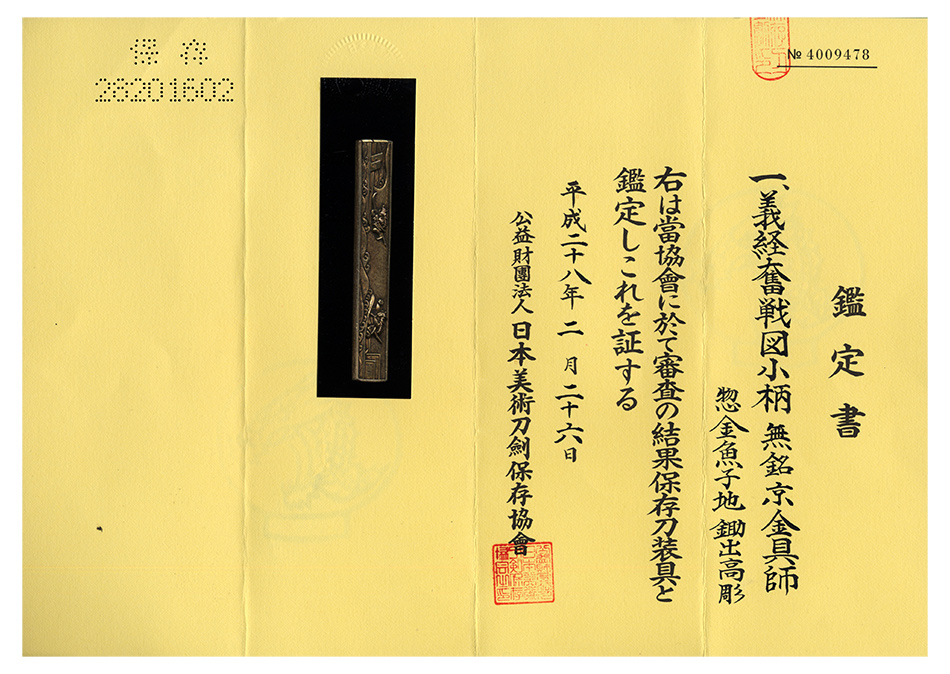 № 4009478
鑑定書
一、義経奮戦図小柄 無銘 京金具師
惣金魚子地 鋤出高彫
右は當協會に於て審査の結果保存刀装具と
鑑定しこれを証する
平成二十八年 二 月 二十六日
公益財團法人 日本美術刀劍保存協會
保存
28201602